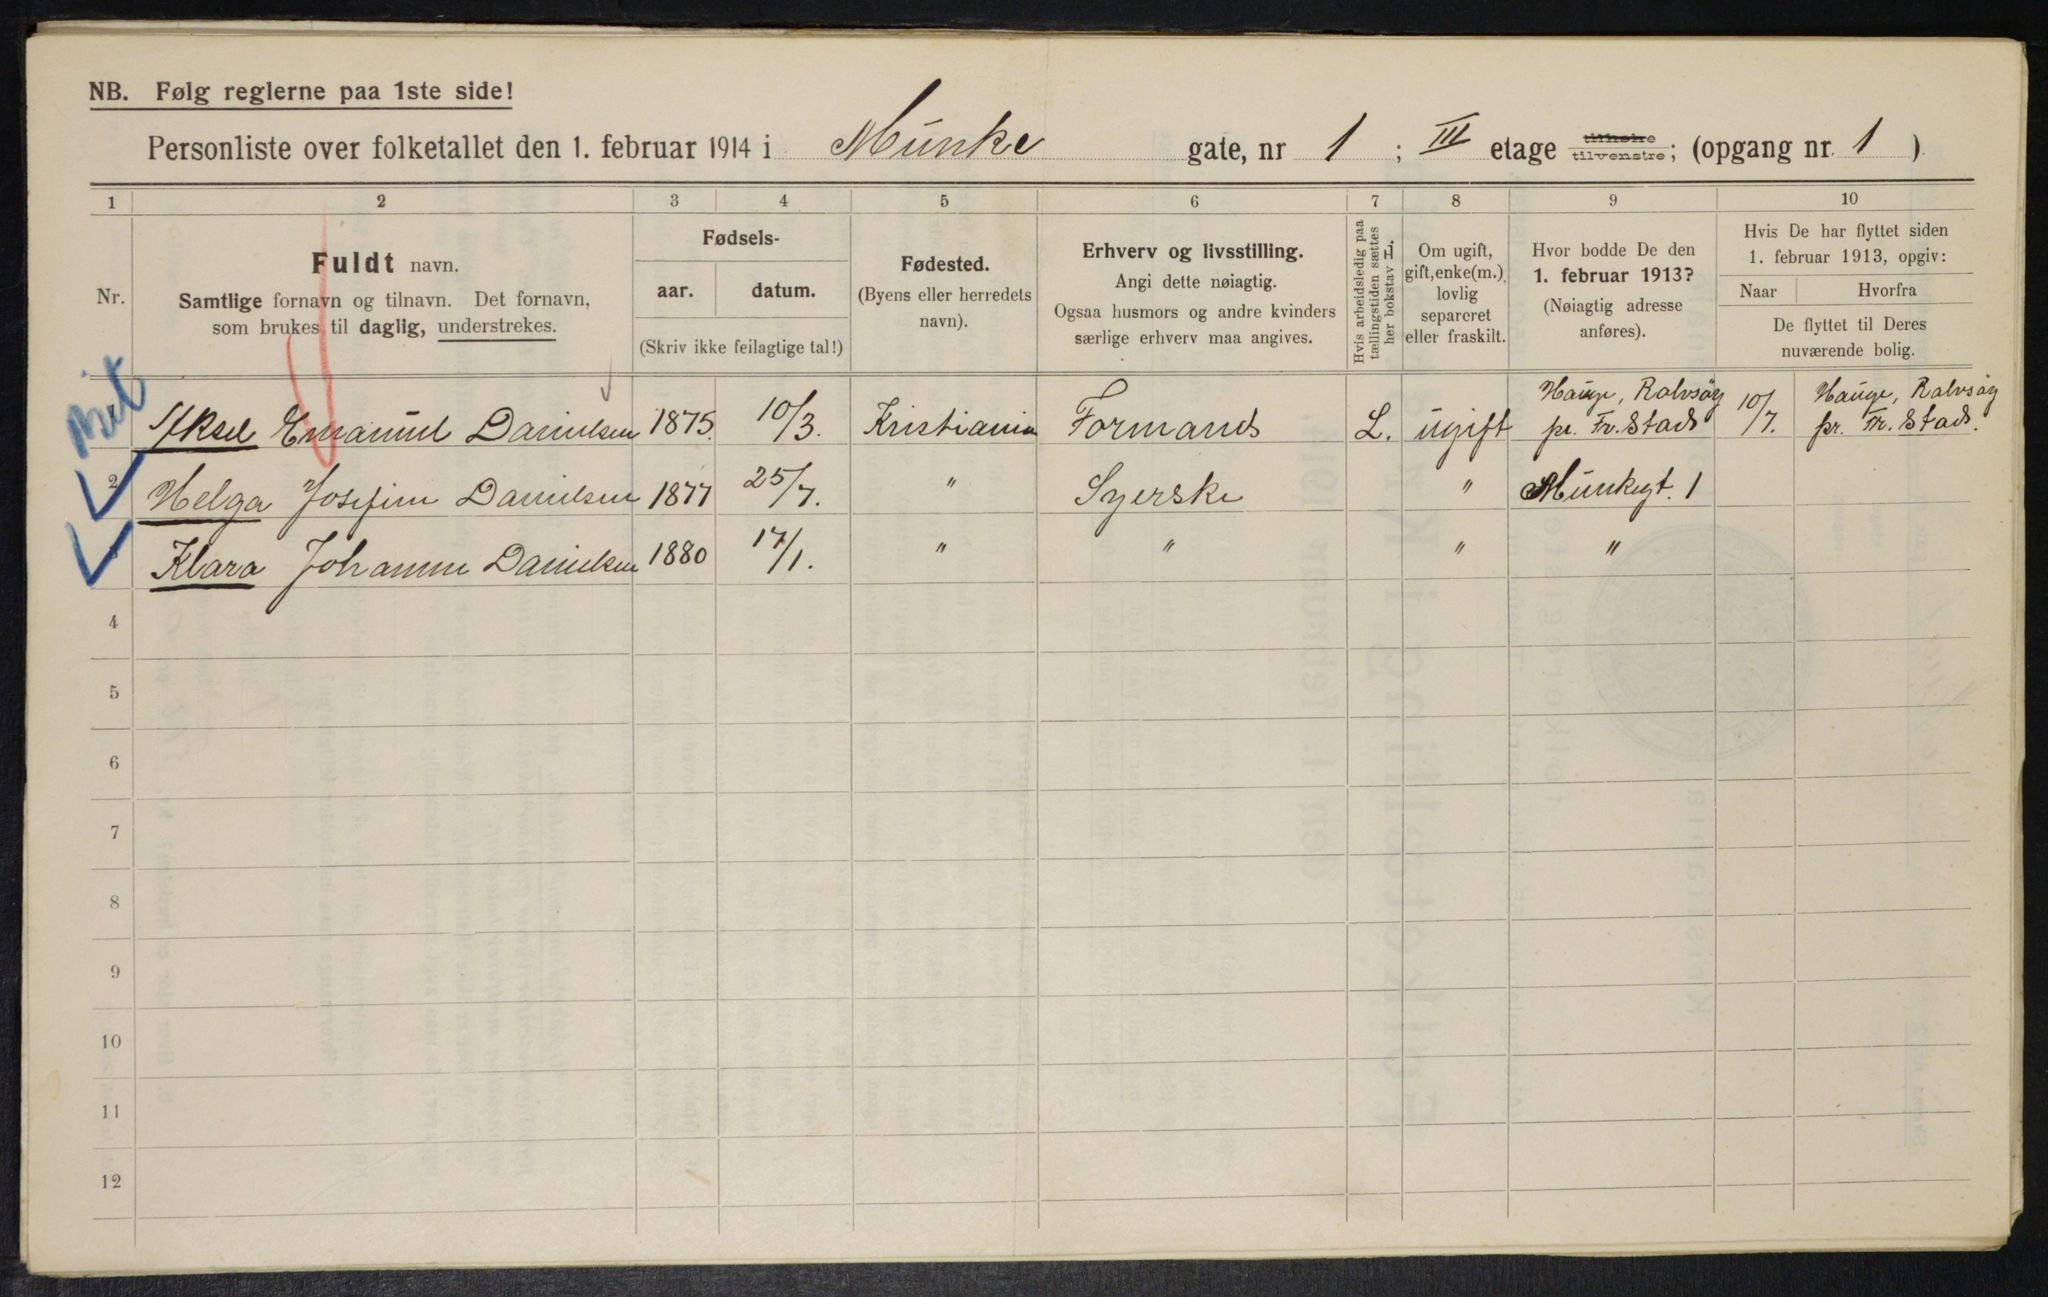 NB. Følg reglerne paa 1ste side!
Personliste over folketallet den 1. februar 1914 i Munke gate, nr 1 ; III etage tilhøire tilvenstre; (opgang nr. 1 )
1 2 3 4 5 6 7 8 9 10
Nr.
Fuldt navn.
Samtlige fornavn og tilnavn. Det fornavn,
som brukes til daglig, understrekes.
Fødsels-
aar. datum.
(Skriv ikke feilagtige tal!)
Fødested.
(Byens eller herredets
navn).
Erhverv og livsstilling.
Angi dette nøiagtig.
Ogsaa husmors og andre kvinders
særlige erhverv maa angives.
Hvis arbeidsledig paa
tællingstiden sættes
her bokstav L.
Om ugift,
gift, enke(m.),
lovlig
separeret
eller fraskilt.
Hvor bodde De den
1. februar 1913?
(Nøiagtig adresse
anføres).
Hvis De har flyttet siden
1. februar 1913, opgiv:
Naar Hvorfra
De flyttet til Deres
nuværende bolig.
Aksel Emanuel Danielsen 1875. 10/3. Kristiania Formand L. ugift Hauge, Rolvsöy pr. Fr.Stad 10/7. Hauge, Rolvsöy pr. Fr.Stad.
2 Helga Josefine Danielsen 1877 25/7. " Syerske " Munkegt. 1
3 Klara Johanne Danielsen 1880 17/1. " " " "
4
5
6
7
8
9
10
11
12